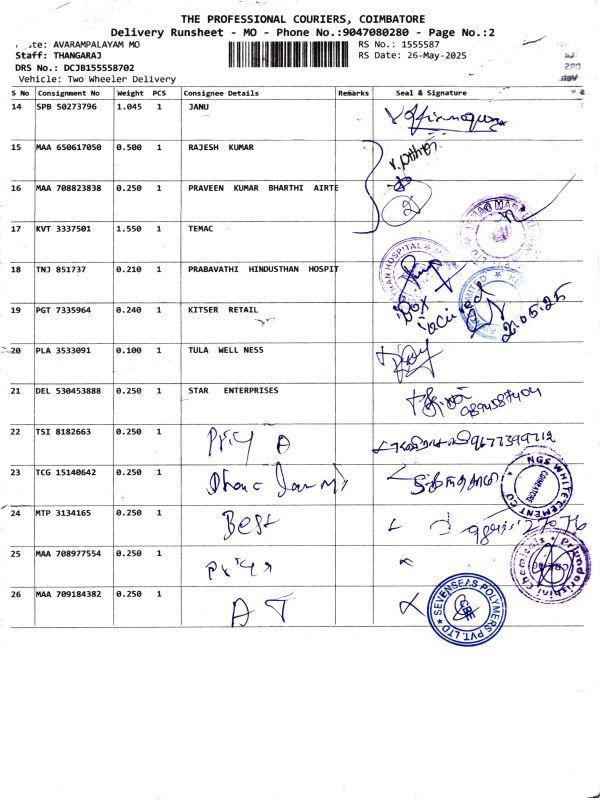 THE PROFESSIONAL COURIERS, COIMBATORE
Delivery Runsheet - MO - Phone No.:9047080280 - Page No.:2
AVARAMPALAYAM MO RS No.: 1555587
Staff: THANGARAJ RS Date: 26-May-2025
DRS No.: DCJB155558702
Vehicle: Two Wheeler Delivery
S No Consignment No Weight PCS Consignee Details Remarks Seal & Signature
14 SPB 50273796 1.045 1 JANU
15 MAA 650617050 0.500 1 RAJESH KUMAR
16 MAA 708823838 0.250 1 PRAVEEN KUMAR BHARTHI AIRTE
17 KVT 3337501 1.550 1 TEMAC
18 TNJ 851737 0.210 1 PRABAVATHI HINDUSTHAN HOSPIT
19 PGT 7335964 0.240 1 KITSER RETAIL
20 PLA 3533091 0.100 1 TULA WELL NESS
21 DEL 530453888 0.250 1 STAR ENTERPRISES
9894587404
22 TSI 8182663 0.250 1 Priy A 9677399712
23 TCG 15140642 0.250 1
NGS WHITE CEMENT CO
COIMBATORE
24 MTP 3134165 0.250 1 Best
25 MAA 708977554 0.250 1 Priya
26 MAA 709184382 0.250 1 A T
SEVENSEAS POLYMERS PVT. LTD